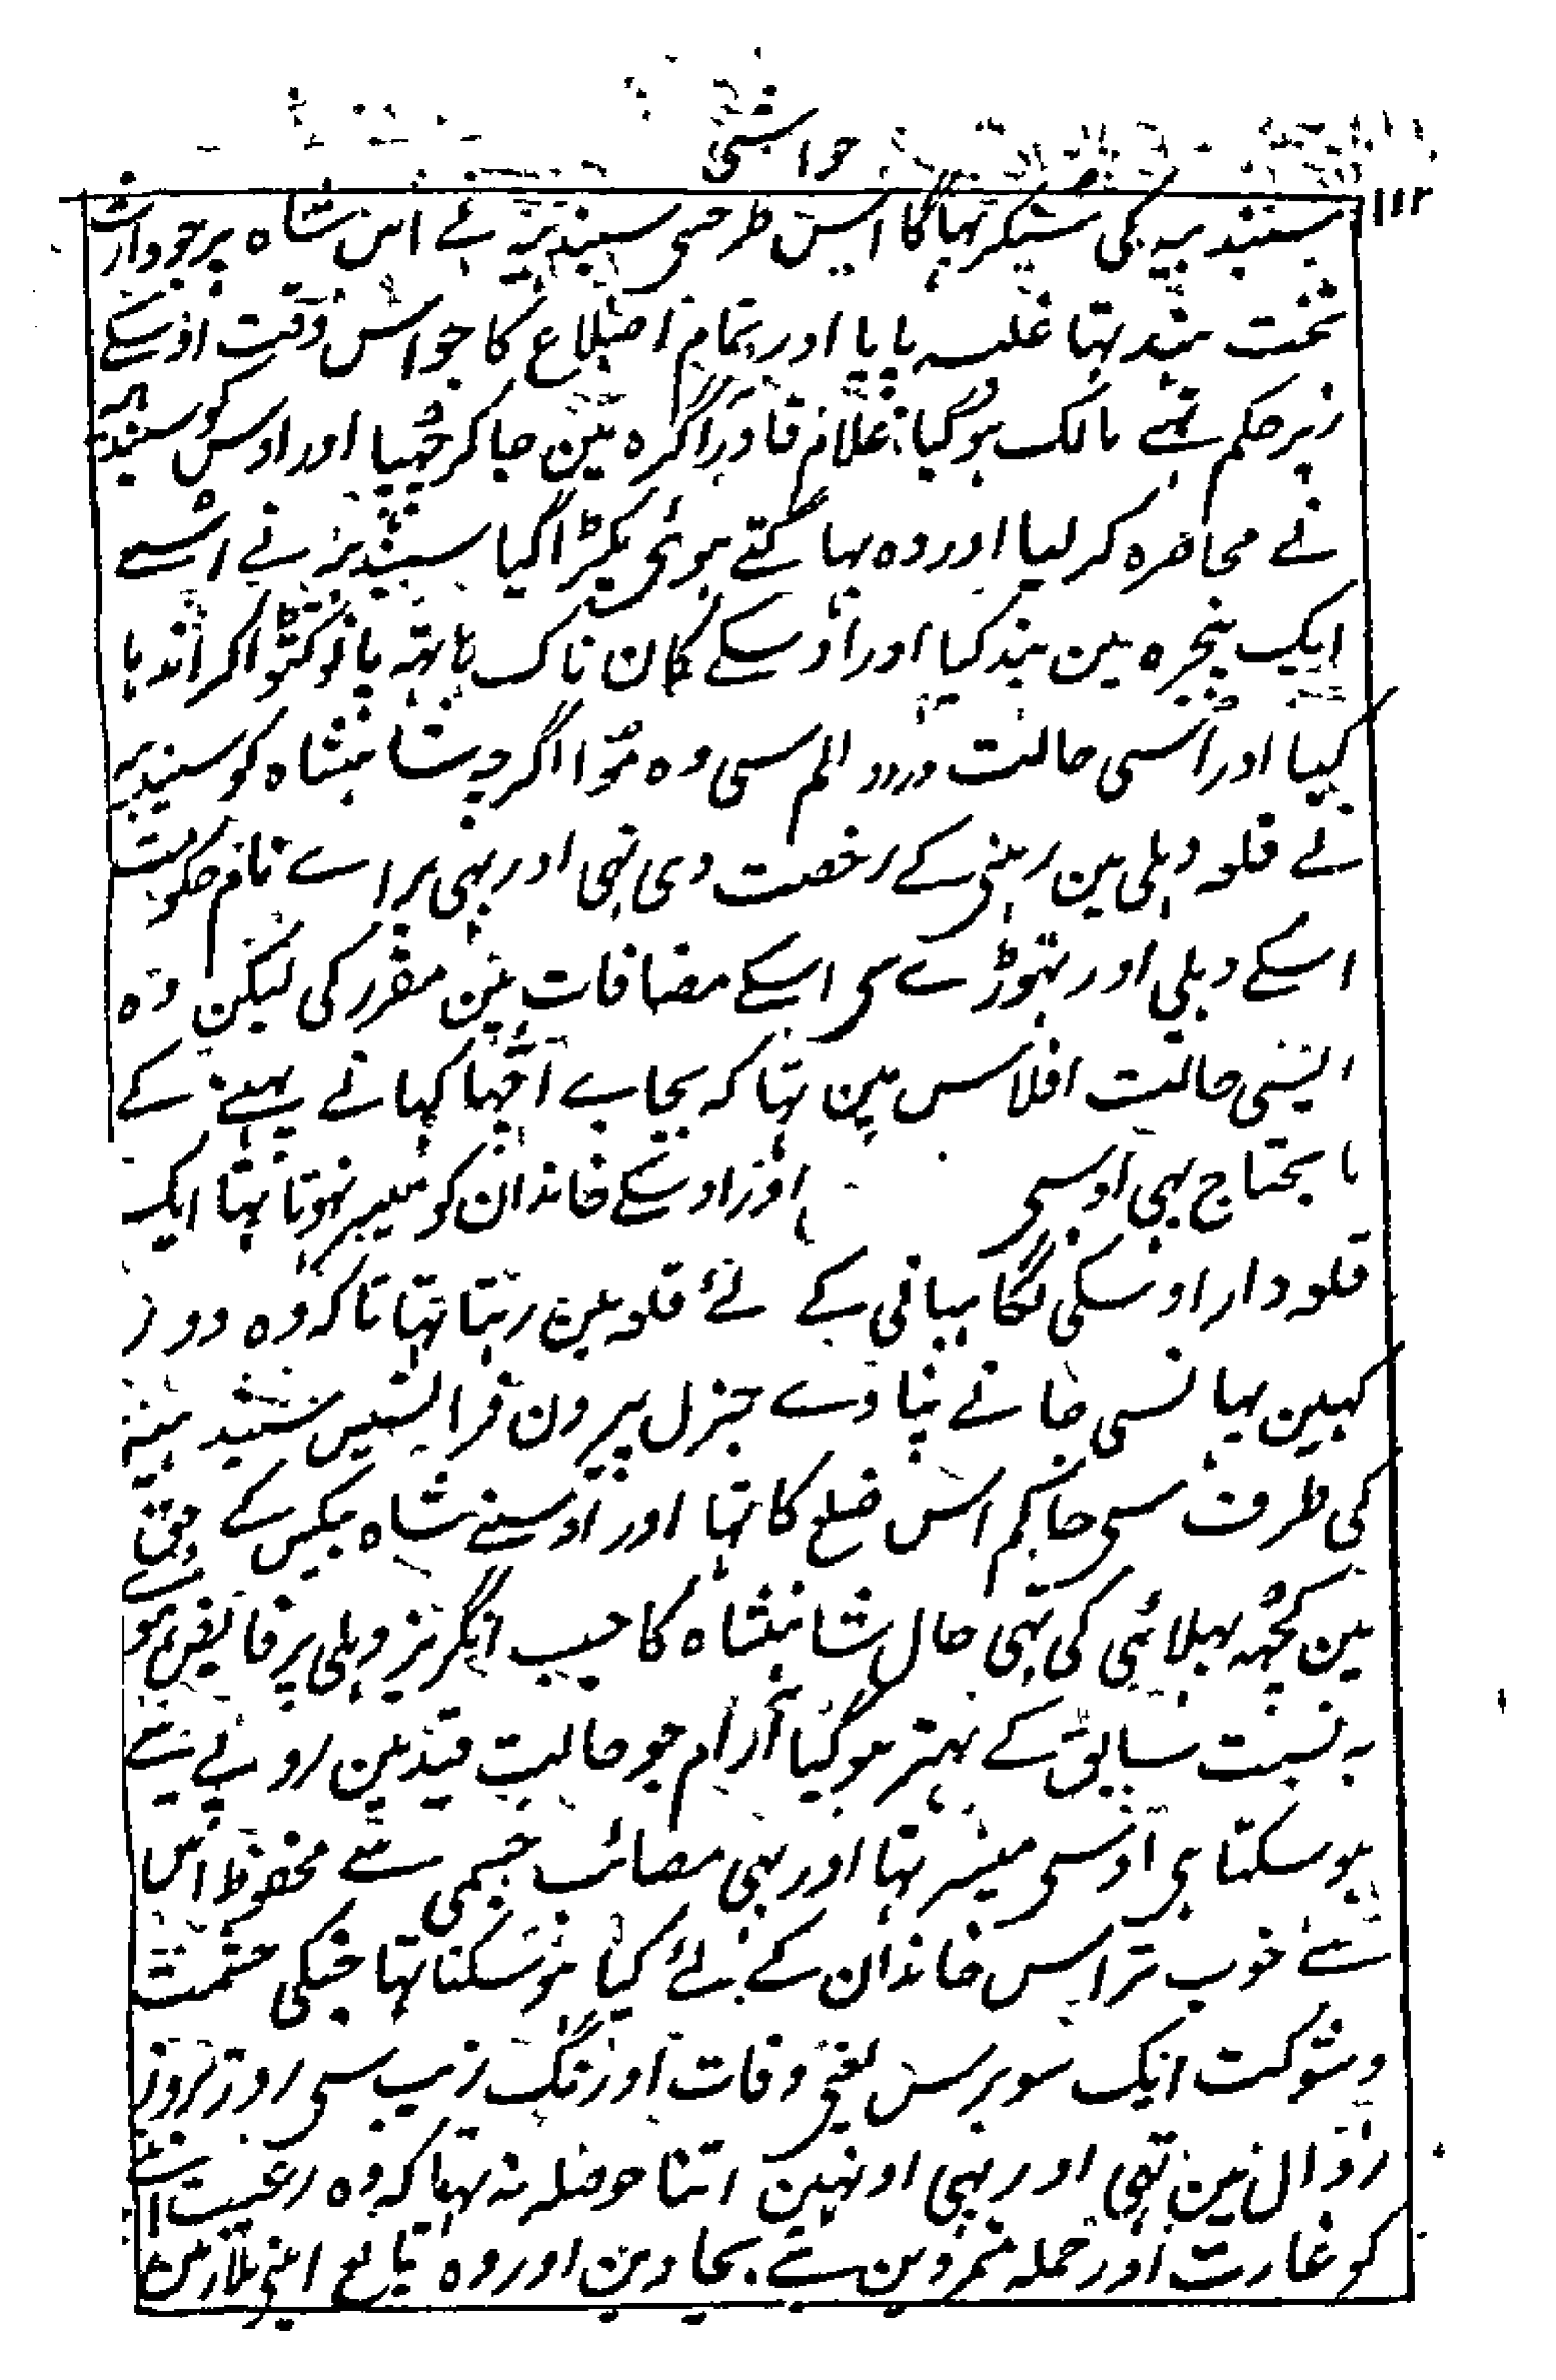 حواشی
۱۱۲
سیندیہ کی شیکر بہاگا اس طرحسی سیندیہ نے اس شاہ پر جو وارث
تخت ہند تہا غلبہ پایا اور تمام اضلاع کا جو اس وقت اوسکے
زیر حکم تہے مالک ہوگیا غلام قادر آگرہ مین جا کر چُہپا اور اوس کو سیندیہ
نے محاصرہ کر لیا اور وہ بہاگتے ہوئی پکڑا گیا سیندیہ نے اسے
ایک پنجرہ مین بند کیا اور اوسکے کان ناک ہاتہہ پانو کٹوا کر اندہا
کیا اور اسی حالت درد و الم سی وہ مُوا اگرچہ شاہنشاہ کو سیندیہ
نے قلعہ دہلی مین رہنی کے رخصت دی تہی اور بہی براے نام حکومت
اسکے دہلی اور تہوڑے سی اسکے مضافات مین مقرر کی لیکن وہ
ایسی حالت افلاس مین تہا کہ بجاے اچہا کہانے پہنے کے
مایحتاج بہی اوسی اور اوسکے خاندان کو میسر نہوتا تہا ایک
قلعہ دار اوسکی نگاہبانی کے لئے قلعہ مین رہتا تہا تاکہ وہ دوڑ
کہین یہانسی جانے نپاوے جنرل پیرون فرانسیس سیندیہ
کی طرف سی حاکم اس ضلع کا تہا اور اوسنے شاہ بیکس کے حق
مین کچُہہ بہلائی کی تہی حال شاہنشاہ کا جب انگریز دہلی پر قابض ہوے
بہ نسبت سابق کے بہتر ہو گیا آرام جو حالت قید مین روپے سے
ہو سکتا ہی اوسی میسر تہا اور بہی مصائب جسمی سے محفوظ اس
سے خوب تر اس خاندان کے لئے کیا ہو سکتا تہا جنکی حشمت
و شوکت ایک سو برس یعنی وفات اورنگ زیب سی روز بروز
زوال مین تہی اور بہی اونہین اتنا حوصلہ نہ تہا کہ وہ رعیت اپنے
کو غارت اور حملہ غیرون سے بچاوین اور وہ تابع اپنی ملازمین